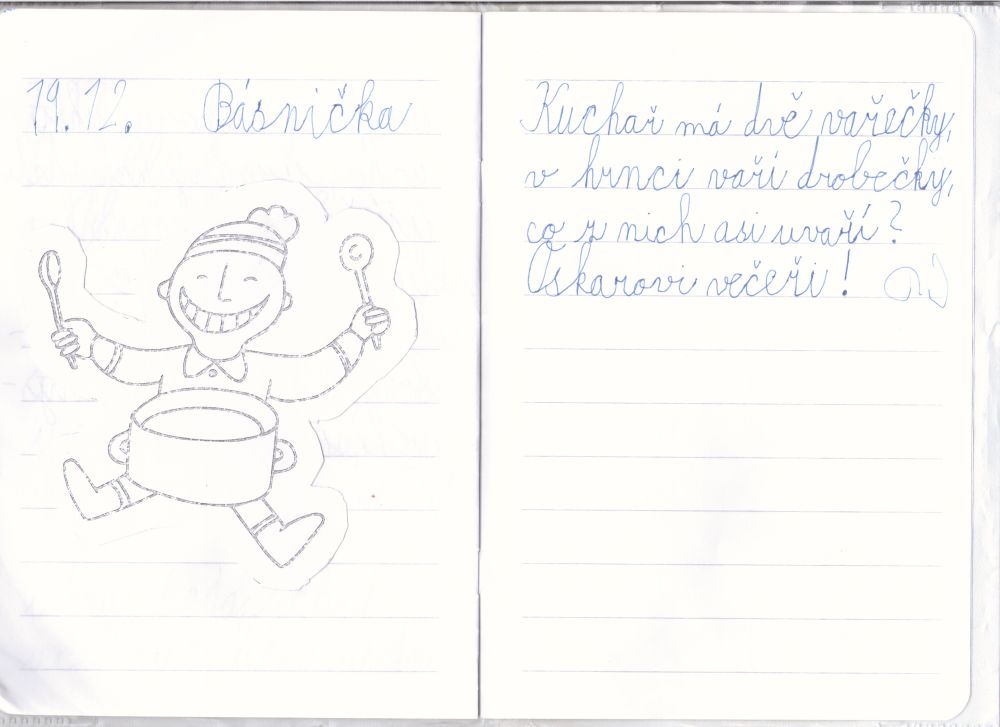 19.12. Básnička
Kuchař má dvě vařečky,
v hrnci vaří drobečky,
co z nich asi uvaří?
Oskarovi večeři!